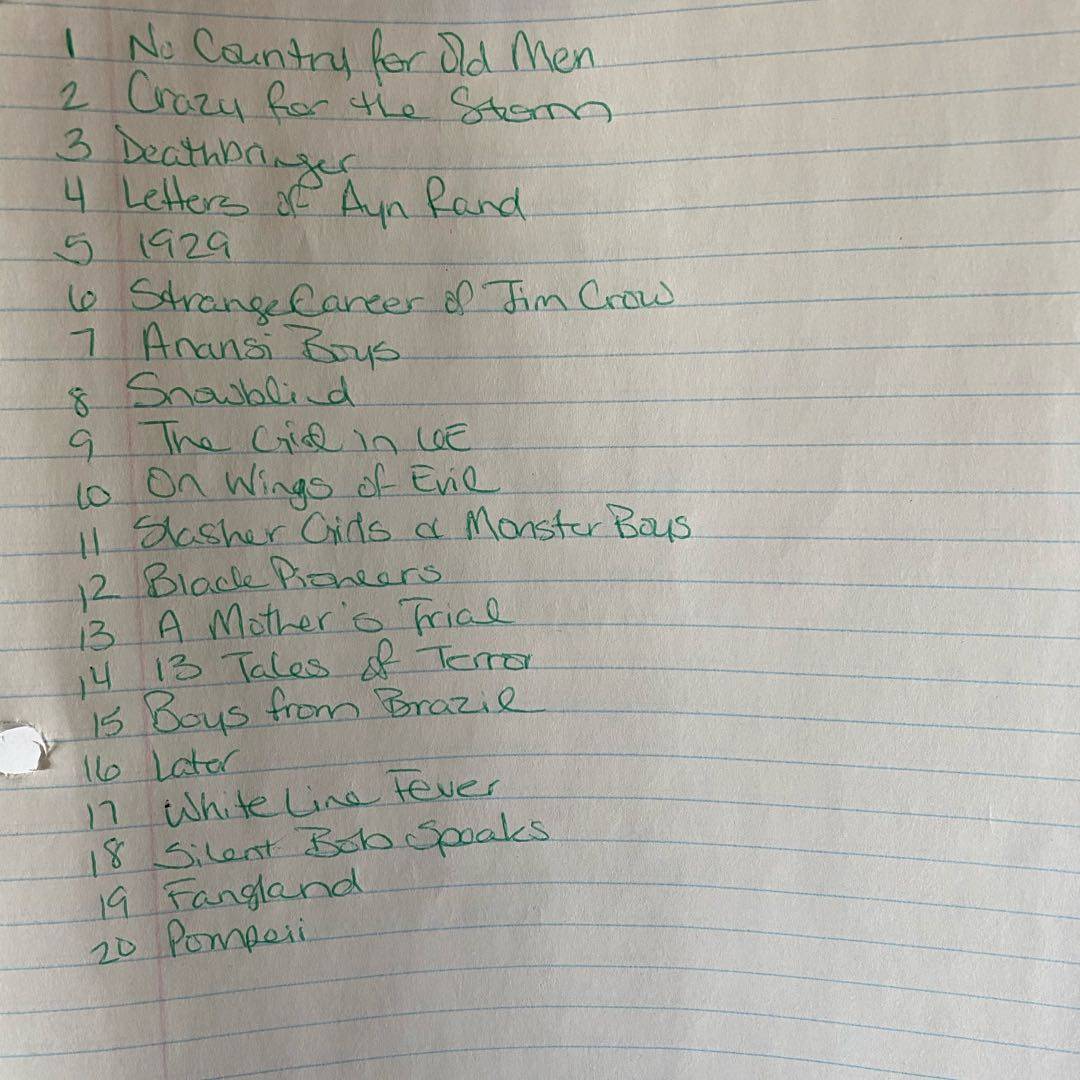 1 No Country for Old Men
2 Crazy for the Storm
3 Deathbringer
4 Letters of Ayn Rand
5 1929
6 Strange Career of Jim Crow
7 Anansi Boys
8 Snowblind
9 The Girl in ICE
10 On Wings of Evil
11 Slasher Girls & Monster Boys
12 Black Pioneers
13 A Mother's Trial
14 13 Tales of Terror
15 Boys from Brazil
16 Later
17 White Line Fever
18 Silent Bob Speaks
19 Fangland
20 Pompeii